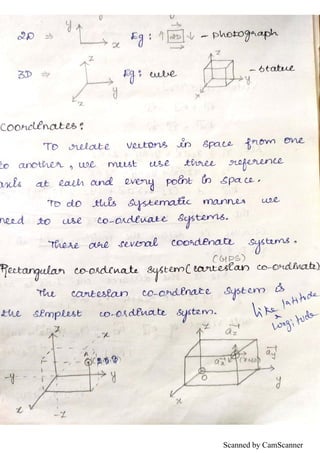 2D ⇒ y x Eg: ↑ 2D ↓ - photograph
3D ⇒ z y x Eg: cube z y x - statue
Coordinates:
To relate vectors in space from one
to another, we must use three reference
axis at each and every point in space.
To do this systematic manner we
need to use co-ordinate systems.
There are several coordinate systems.
(GPS)
Rectangular co-ordinate system (cartesian co-ordinate)
The cartesian co-ordinate system is
the simplest co-ordinate system.
like latitude
longitude
z -x
-y y
x -z
z
O
x y
Scanned by CamScanner